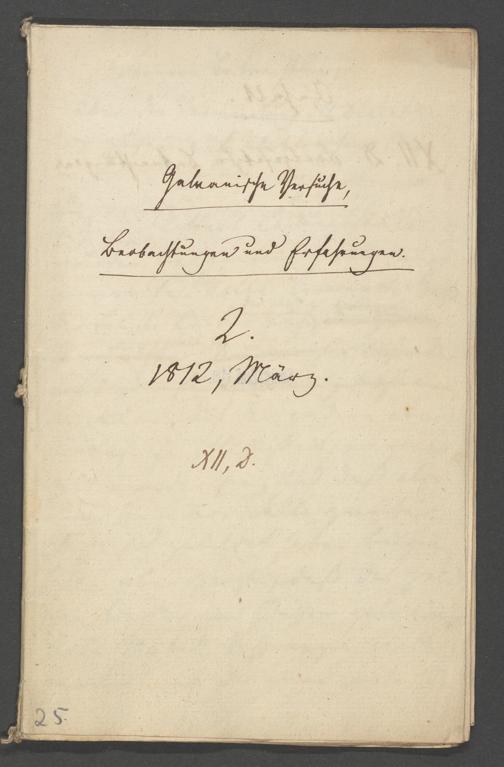 Galvanische Versuche,
Beobachtungen und Erfahrungen.
2.
1812, März.
XII, D.
25